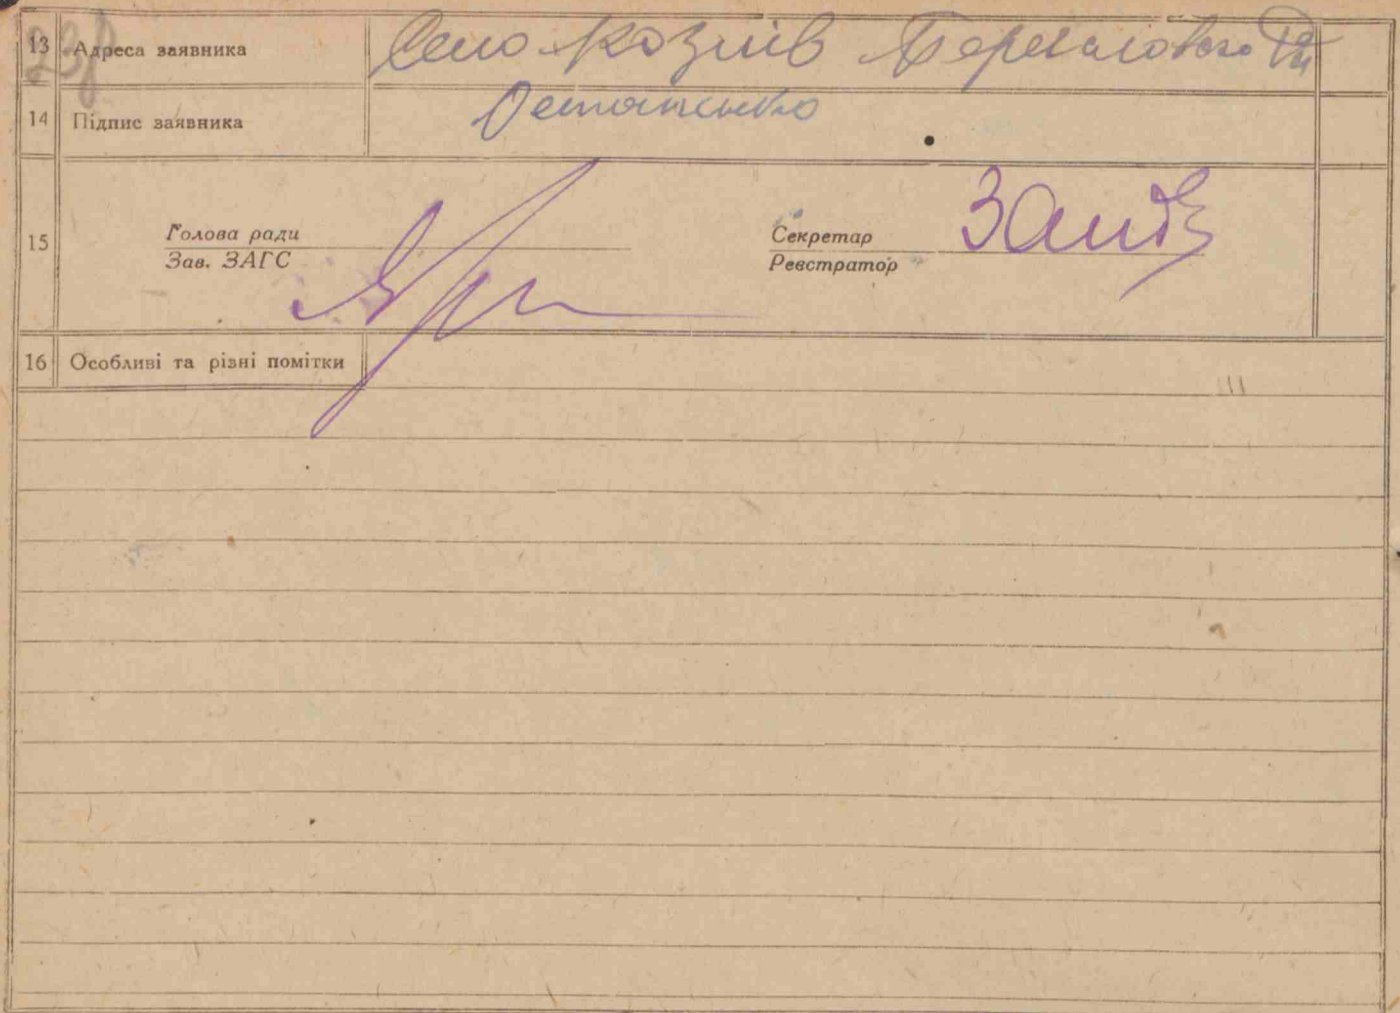 23
13 Адреса заявника Село Козлів Переяславского Рн
14 Підпис заявника Остапенко
15 Голова ради
Зав. ЗАГС
Секретар
Реєстратор
16 Особливі та різні помітки